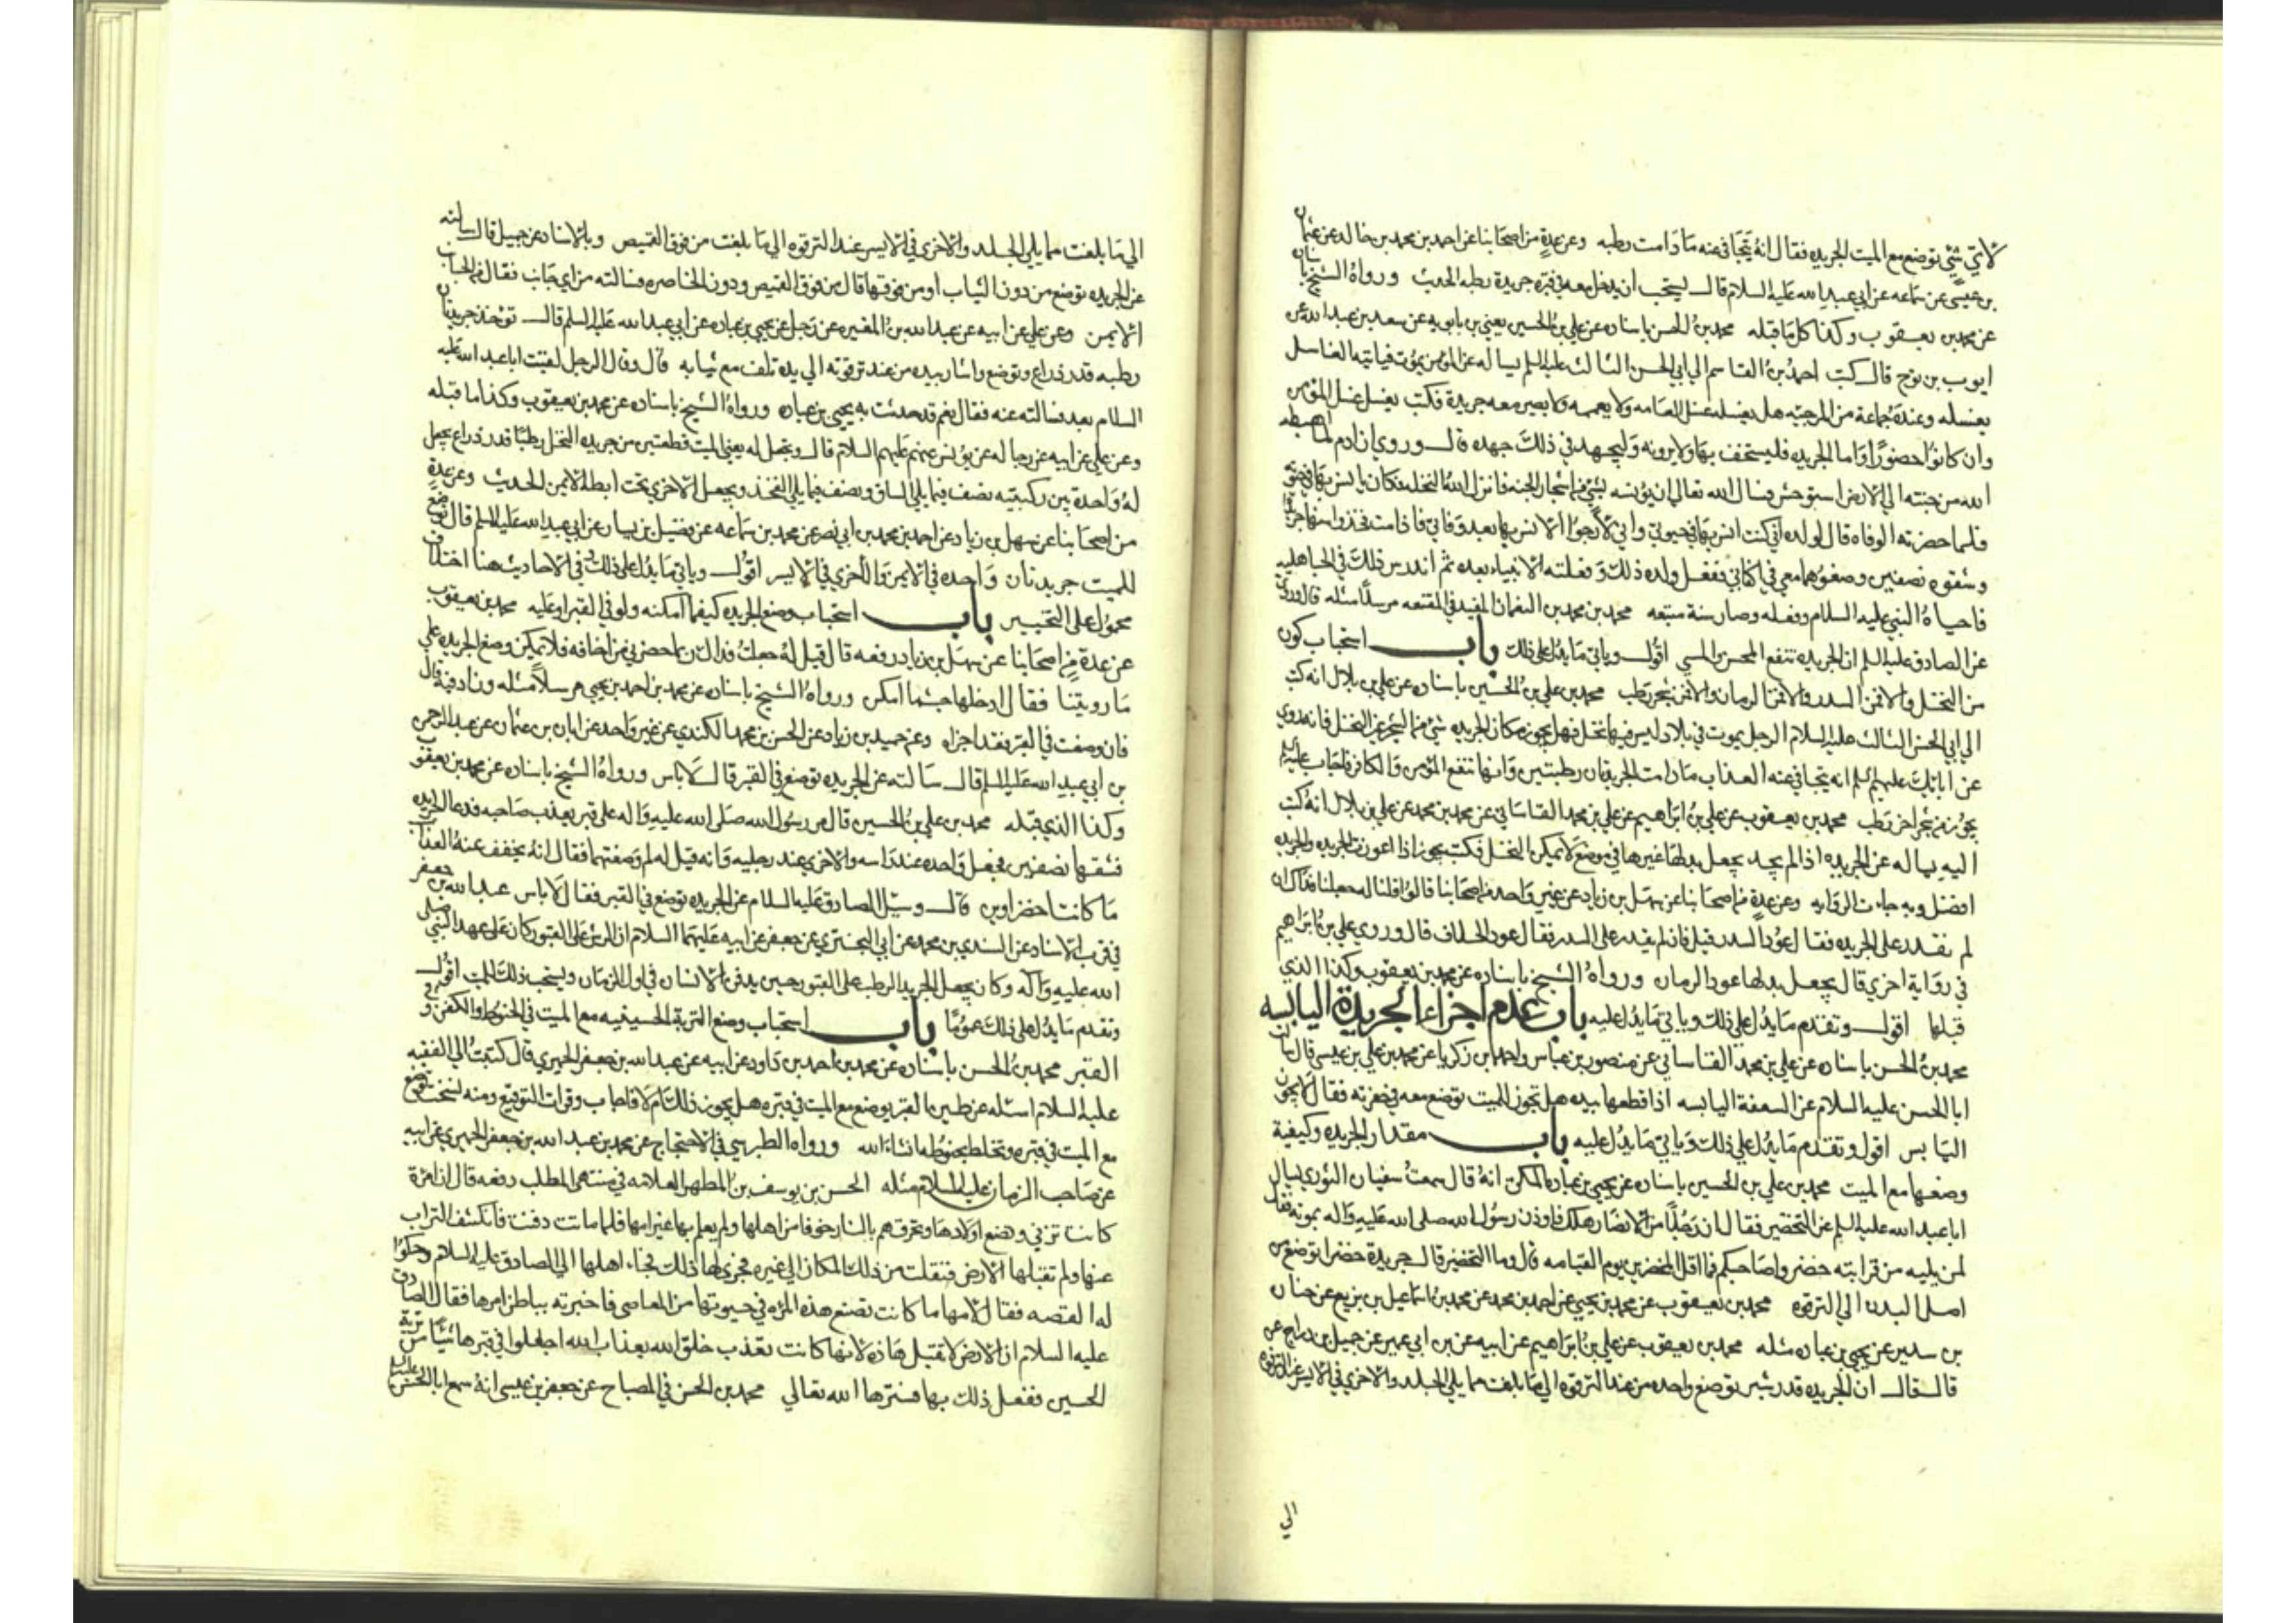 لاي شئ توضع مع الميت الجريده فقال انه يتجافى عنه مادامت رطبه وعن عدة من اصحابنا عن احمد بن محمد بن خالد عن عثمان
بن عيسى عن سماعه عن ابي عبد الله عليه السلام قال يستحب ان يدخل معه في قبره جريدة رطبه الحديث ورواه الشيخ باسناده
عن محمد بن يعقوب وكذا كل ما قبله محمد بن الحسن باسناده عن علي بن الحسين يعني بن بابويه عن سعد بن عبد الله عن
ايوب بن نوح قال كتب احمد بن القاسم الي ابي الحسن الثالث عليه السلم يساله عن المؤمن يموت فياتيه الغاسل
يغسله وعنده جماعة من المرجيه هل يغسله غسل العامه ولا يعممه ولا يصير معه جريدة فكتب يغسل غسل المؤمن
وان كانوا حضورًا واما الجريده فليستخف بها ولا يرونه وليجهد في ذلك جهده قال وروي ان ادم لما اهبطه
الله من جنته الي الارض استوحش فسال الله تعالى ان يؤنسه بشئ من اشجار الجنه فانزل الله النخله فكان يانس بها في حيوته
فلما حضرته الوفاه قال لولده اني كنت انس بها في حيوتي واني لارجوا الانس بها بعد وفاتي فاذا مت فخذوا منها جريدا
وشقوه نصفين وضعوهما معي في اكفاني ففعل ولده ذلك وفعلته الانبياء بعده ثم اندرس ذلك في الجاهليه
فاحياه النبي عليه السلام وفعله وصار سنة متبعه محمد بن محمد بن النعمان المفيد في المقنعه مرسلًا مثله قال وروي
عن الصادق عليه السلم ان الجريده تنفع المحسن والمسي اقول وياتي ما يدل على ذلك باب استحباب كون
من النخل والا فمن السدر والا فمن الرمان والا فمن شجر رطب محمد بن علي بن الحسين باسناده عن علي بن بلال انه كتب
الي ابي الحسن الثالث عليه السلام الرجل يموت في بلاد ليس فيها نخل فهل يجوز مكان الجريده شئ من الشجر غير النخل فانه روي
عن ابائك عليهم السلم انه يتجافى عنه العذاب مادامت الجريدتان رطبتين وانها تنفع المؤمن والكافر فاجاب عليه السلم
يجوز من شجر اخر رطب محمد بن يعقوب عن علي بن ابراهيم عن علي بن محمد القاساني عن محمد بن محمد عن علي بن بلال انه كتب
اليه يساله عن الجريده اذا لم يجد يجعل بدلها غيرها في موضع لا يمكن النخل فكتب يجوز اذا اعوزت الجريده والجريده
افضل وبه جاءت الروايه وعن عدة من اصحابنا عن سهل بن زياد عن غير واحد من اصحابنا قالوا قلنا له جعلنا فداك ان
لم نقدر على الجريده فقال عود السدر قيل فان لم يقدر على السدر فقال عود الخلاف قال وروي علي بن ابراهيم
في رواية اخري قال يجعل بدلها عود الرمان ورواه الشيخ باسناده عن محمد بن يعقوب وكذا الذي
قبلها اقول وتقدم ما يدل على ذلك وياتي ما يدل عليه باب عدم اجزاء الجريدة اليابسه
محمد بن الحسن باسناده عن علي بن محمد القاساني عن منصور بن عباس واحمد بن زكريا عن محمد بن علي بن عيسى قال سالت
ابا الحسن عليه السلام عن السعفة اليابسه اذا قطعها بيده هل تجوز للميت توضع معه في حفرته فقال لا يجوز
اليابس اقول وتقدم ما يدل على ذلك وياتي ما يدل عليه باب مقدار الجريده وكيفية
وضعها مع الميت محمد بن علي بن الحسين باسناده عن يحيى بن عباده المكي انه قال سمعت سفيان الثوري يسال
ابا عبد الله عليه السلم عن التخضير فقال ان رجلًا من الانصار هلك فاوذن رسول الله صلى الله عليه واله بموته فقال
لمن يليه من قرابته خضروا صاحبكم فما اقل المخضرين يوم القيامه قال وما التخضير قال جريدة خضرا توضع من
اصل اليدين الي الترقوه محمد بن يعقوب عن محمد بن يحيى عن احمد بن محمد عن محمد بن اسماعيل بن بزيع عن حنان
بن سدير عن يحيى بن عباده مثله محمد بن يعقوب عن علي بن ابراهيم عن ابيه عن بن ابي عمير عن جميل بن دراج عن
قال قال ان الجريده قدر شبر توضع واحده من عند الترقوه الي ما بلغت مما يلي الجلد والاخري في الايسر عند الترقوه
الي
الي ما بلغت مما يلي الجلد والاخري في الايسر عند الترقوه الي ما بلغت من فوق القميص وبالاسناد عن جميل قال سالته
عن الجريده توضع من دون الثياب او من فوقها قال من فوق القميص ودون الخاصره فسالته من اي جانب فقال من الجانب
الايمن وعن علي عن ابيه عن عبد الله بن المغيره عن رجل عن يحيى بن عباده عن ابي عبد الله عليه السلم قال تؤخذ جريدة
رطبه قدر ذراع وتوضع واشار بيده من عند ترقوته الي يده تلف مع ثيابه قال وقال الرجل لقيت ابا عبد الله عليه
السلام بعد فسالته عنه فقال نعم قد حدثت به يحيى بن عباده ورواه الشيخ باسناده عن محمد بن يعقوب وكذا ما قبله
وعن علي عن ابيه عن رجاله عن يونس عنهم عليهم السلام قال ويجعل له يعني الميت قطعتين من جريد النخل رطبًا قدر ذراع يجعل
له واحدة بين ركبتيه نصف فيما يلي الساق ونصف فيما يلي الفخذ ويجعل الاخري تحت ابطه الايمن الحديث وعن عدة
من اصحابنا عن سهل بن زياد عن احمد بن محمد بن ابي نصر عن محمد بن سماعه عن فضيل بن يسار عن ابي عبد الله عليه السلم قال توضع
للميت جريدتان واحده في الايمن والاخري في الايسر اقول وياتي ما يدل على ذلك وفي الاحاديث هنا اختلاف
محمول على التخيير باب استحباب وضع الجريده كيفما امكنه ولو في القبر او عليه محمد بن يعقوب
عن عدة من اصحابنا عن سهل بن زياد رفعه قال قيل له جعلت فداك ربما حضرني من اخافه فلا يمكن وضع الجريده على
ما رويتنا فقال ادخلها حيثما امكن ورواه الشيخ باسناده عن محمد بن احمد بن يحيى مرسلًا مثله وزاد فيه قال
فان وضعت في القبر فقد اجزاه وعن حميد بن زياد عن الحسن بن محمد الكندي عن غير واحد عن ابان بن عثمان عن عبد الرحمن
بن ابي عبد الله عليه السلم قال سالته عن الجريده توضع في القبر قال لاباس ورواه الشيخ باسناده عن محمد بن يعقوب
وكذا الذي قبله محمد بن علي بن الحسين قال مر رسول الله صلى الله عليه واله على قبر يعذب صاحبه فدعا بجريده
فشقها نصفين فجعل واحده عند راسه والاخري عند رجليه وانه قيل له لم وضعتهما فقال انه يخفف عنه العذاب
ما كانتا خضراوين قال وسئل الصادق عليه السلام عن الجريده توضع في القبر فقال لاباس عبد الله بن جعفر
في قرب الاسناد عن السندي بن محمد عن ابي البختري عن جعفر عن ابيه عليهما السلام ان الرش على القبور كان على عهد النبي صلى
الله عليه واله وكان يجعل الجريد الرطب على القبور حين يدفن الانسان في اول الزمان ويستحب ذلك للميت اقول
وتقدم ما يدل على ذلك عمومًا باب استحباب وضع التربة الحسينيه مع الميت في الحنوط والكفن وفي
القبر محمد بن الحسن باسناده عن محمد بن احمد بن داود عن ابيه عن عبد الله بن جعفر الحميري قال كتبت الي الفقيه
عليه السلام اسئله عن طين القبر يوضع مع الميت في قبره هل يجوز ذلك ام لا فاجاب وقرات التوقيع ومنه نسخت توضع
مع الميت في قبره وتخلط بحنوطه انشاء الله ورواه الطبرسي في الاحتجاج عن محمد بن عبد الله بن جعفر الحميري عن ابيه
عن صاحب الزمان عليه السلام مثله الحسن بن يوسف بن المطهر العلامه في منتهى المطلب رفعه قال ان امرة
كانت تزني وتضع اولادها وتحرقهم بالنار خوفا من اهلها ولم يعلم بها غير امها فلما ماتت دفنت فانكشف التراب
عنها ولم تقبلها الارض فنقلت من ذلك المكان الي غيره فجري لها ذلك فجاء اهلها الي الصادق عليه السلام وحكوا
له القصه فقال لامها ما كانت تصنع هذه المره في حيوتها من المعاصي فاخبرته بباطن امرها فقال الصادق
عليه السلام ان الارض لا تقبل هذه لانها كانت تعذب خلق الله بعذاب الله اجعلوا في قبرها شيئًا من تربة
الحسين ففعل ذلك بها فسترها الله تعالي محمد بن الحسن في المصباح عن جعفر بن عيسى انه سمع ابا الحسن عليه السلم